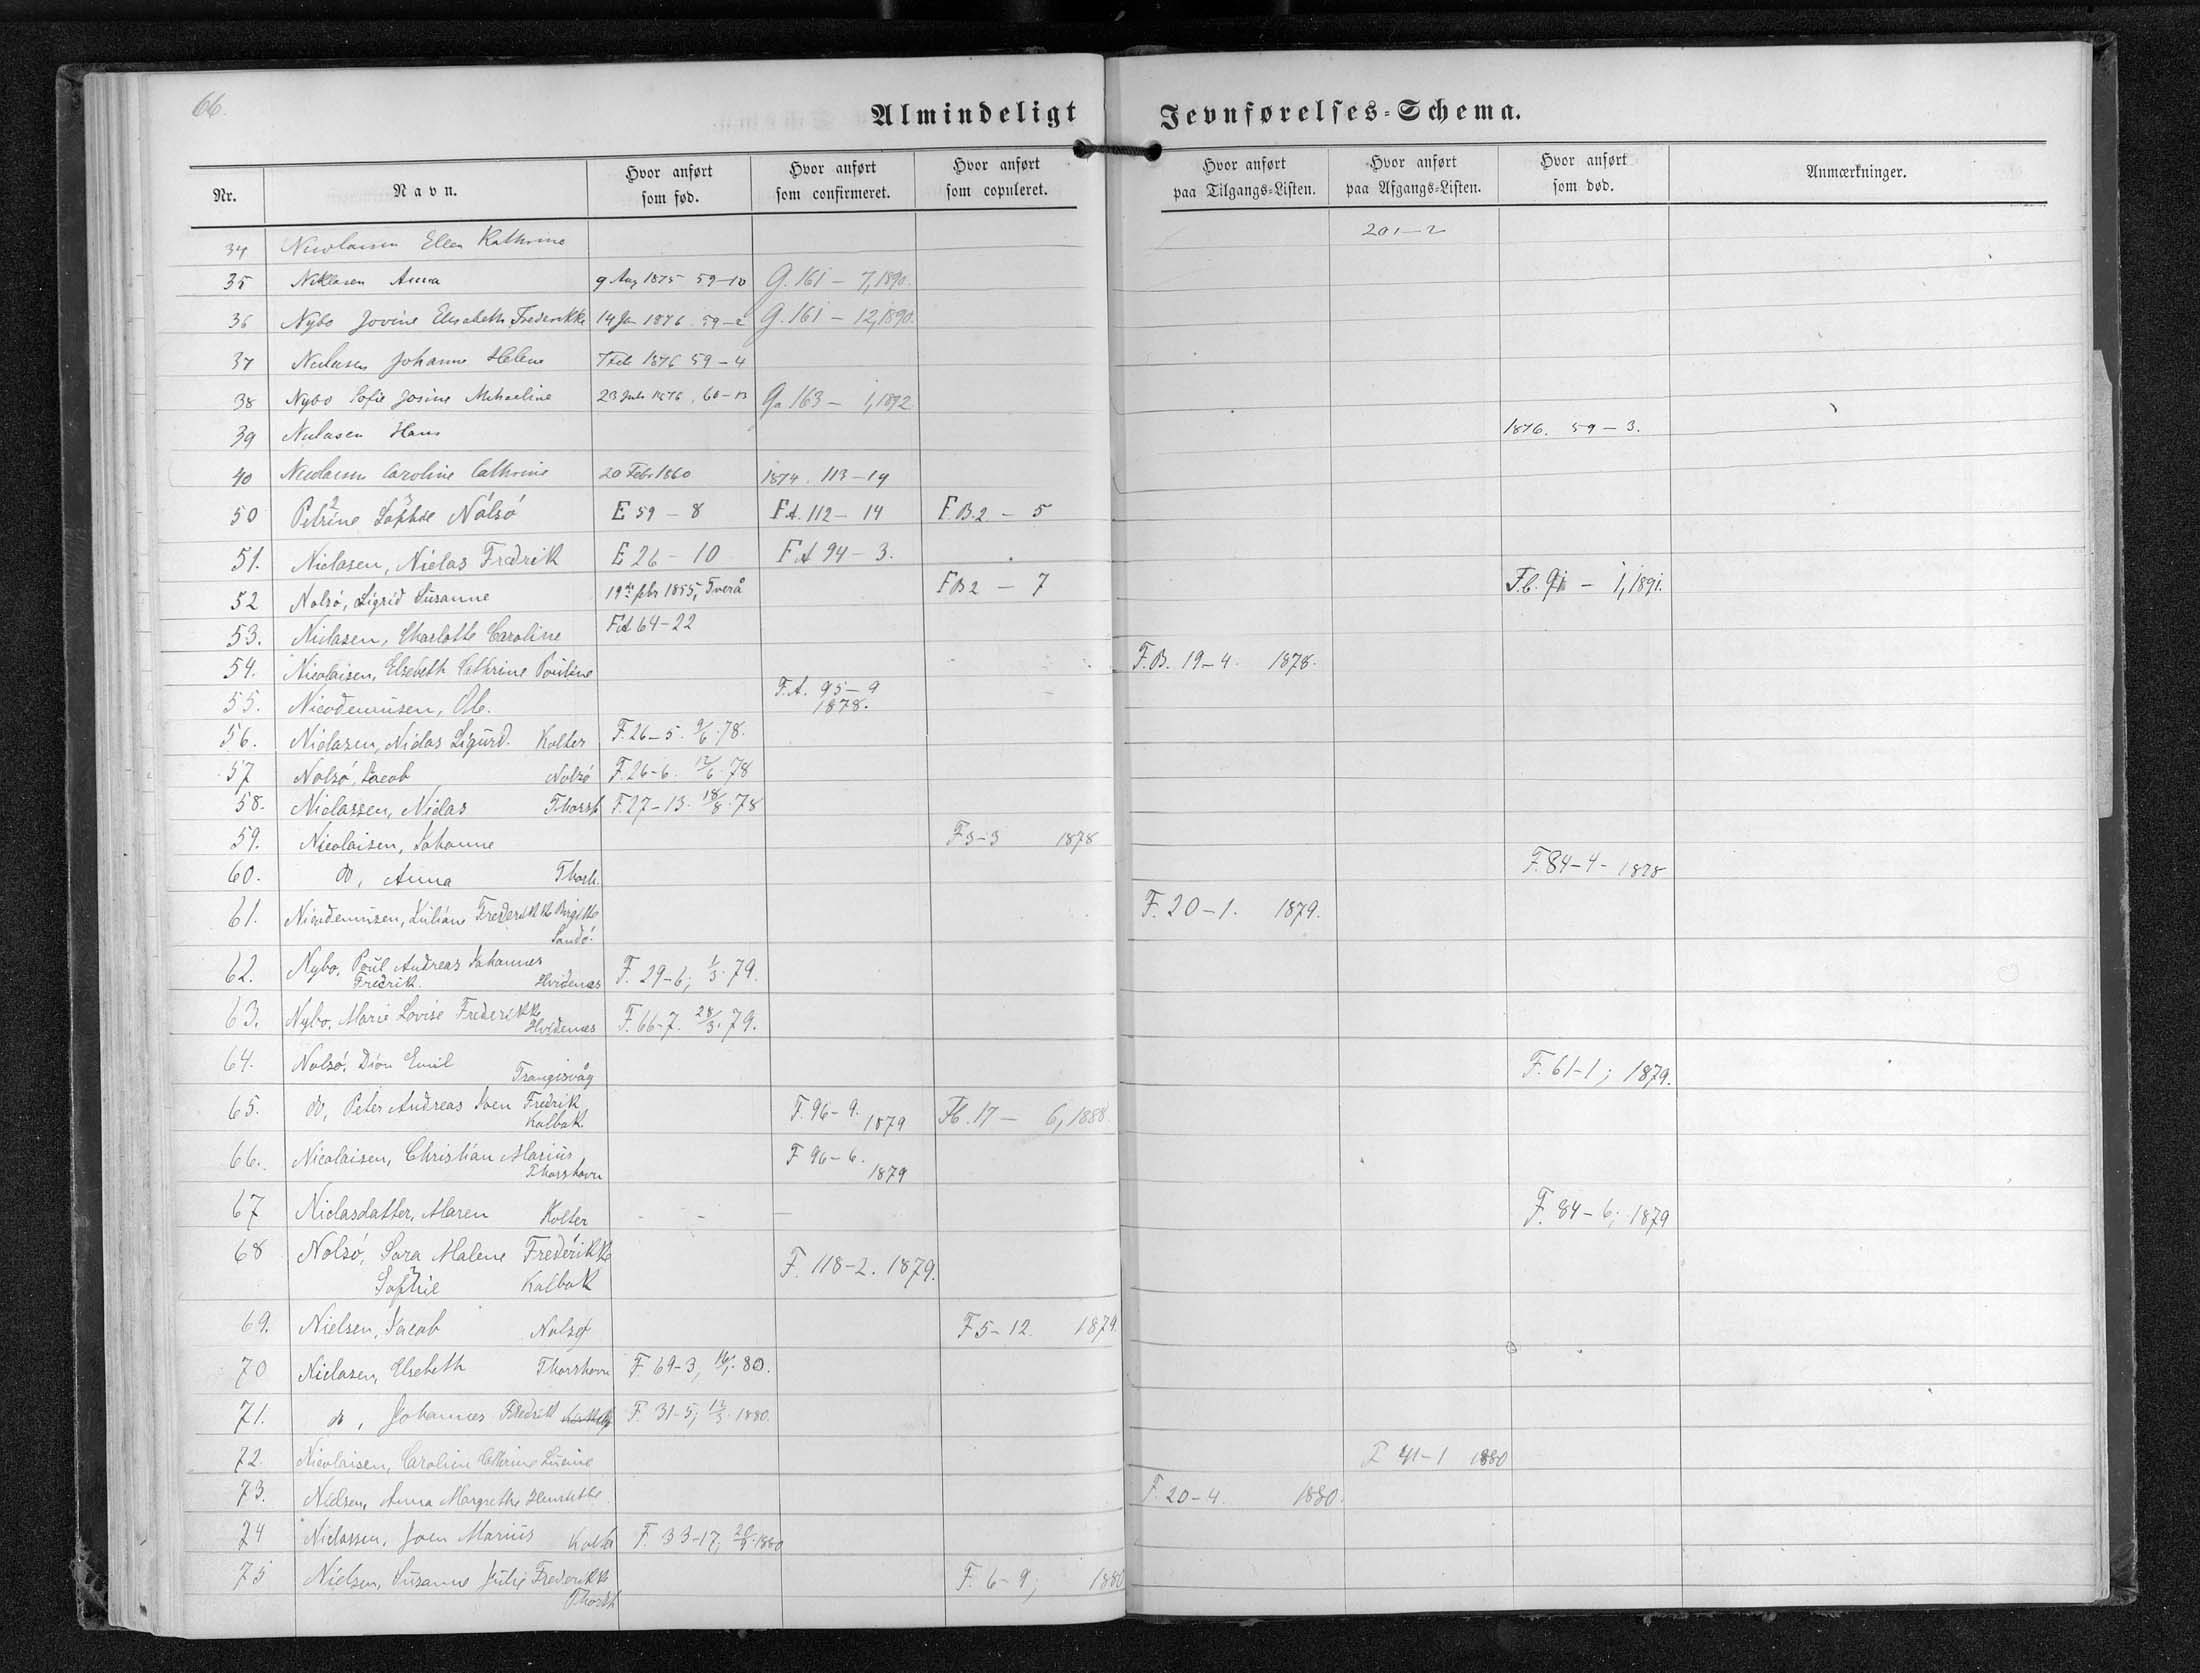 66.
Almindeligt Jevnførelses-Schema.
Nr. Navn. Hvor anført som fød. Hvor anført som confirmeret. Hvor anført som copuleret. Hvor anført paa Tilgangs-Listen. Hvor anført paa Afgangs-Listen. Hvor anført som død. Anmærkninger.
34 Nicolaisen Ellen Kathrine 201-2
35 Niklasen Anna 9 Aug 1875 59-10 G. 161 - 7, 1890.
36 Nybo Jovine Elisabeth Frederikke 14 Jan 1876. 59-2 G. 161 - 12, 1890.
37 Niclasen Johanne Helene 7 Feb 1876 59-4
38 Nybo Sofie Josine Michaeline 23 1876. 60-13 Ga 163 - 1, 1892
39 Niclasen Hans 1876. 59-3.
40 Nicolaisen Caroline Cathrine 20 Febr 1860 1874. 113-19
50 Petrine Sophie Nólsó E 59 - 8 F.A. 112 - 14 F.B.2 - 5
51. Niclasen, Niclas Fredrik E 26 - 10 F.A 94 - 3.
52 Nolsó, Sigrid Susanne 19de febr 1855, Tverå FB2 - 7 F.b. 91 - 1, 1891.
53. Niclasen, Charlotte Caroline FA 64-22
54. Nicolaisen, Elsebeth Cathrine Pouline F.B. 19-4. 1878.
55. Nicodemusen, Ole. F.A. 95-9 1878.
56. Niclasen, Niclas Sigurd. Kolter F. 26-5. 9/6. 78.
57 Nolsó, Jacob Nolsó F. 26-6. 12/6. 78
58. Niclassen, Niclas Thorsh F. 27-13. 18/8. 78
59. Nicolaisen, Johanne F 3-3 1878
60. do, Anna Thorsh. F. 84-4- 1878
61. Nicodemusen, Juliane Frederikke Birgitte
Sandó. F. 20-1. 1879.
62. Nybo, Poul Andreas Johannes
Fredrik. Hvidenæs F. 29-6; 1/3. 79.
63. Nybo, Marie Lovise Frederikke
Hvidenæs F. 66-7. 28/3. 79.
64. Nolsó, Dion Emil
Trangisvåg F. 61-1; 1879.
65. do, Peter Andreas Joen Fredrik
Kalbak F. 96-9. 1879 Fb. 17 - 6, 1888.
66. Nicolaisen, Christian Marius
Thorshavn F 96-6. 1879
67 Niclasdatter, Maren Kolter F. 84-6; 1879
68 Nolsó, Sara Malene Frederikke
Sophie Kalbak F. 118-2. 1879.
69. Nielsen, Jacob Nolsø F 5-12. 1879.
70 Niclasen, Elsebeth Thorshavn F. 69-3, 80.
71. do, Johannes Fredrik F. 31-5; 12/3. 1880.
72. Nicolaisen, Caroline Cathrine Lucine F 41-1 1880
73. Nielsen, Anna Margrethe Henriette F. 20-4. 1880.
74 Niclassen, Joen Marius Kolter F. 33-17; 1880
75 Nielsen, Susanne Julie Frederikke
Thorsh F. 6-9; 1880